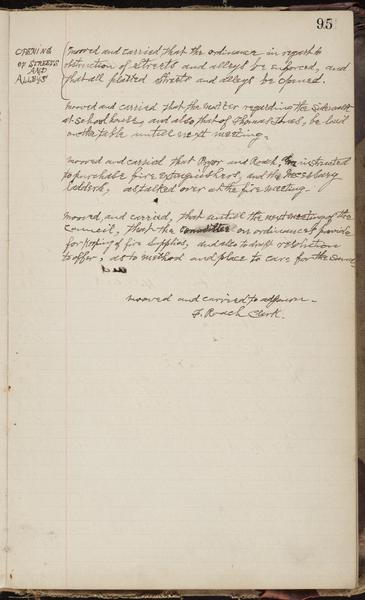 95
OPENING
OF STREETS
AND
ALLEYS
moved and carried that the ordinance in regard to
obstruction of streets and alleys be enforced, and
that all platted streets and alleys be opened.
moved and carried that the matter regarding the sidewalk
at school house, and also that of Thomas, be laid
on the table untill next meeting.
moved and carried that Pryor and Roach, be instructed
to purchase fire extinguishers, and the
ladders, as talked over at the fire meeting
moved, and carried, that untill the next meeting of the
Council, that the committee on ordinances provide
for keeping of fire supplies, and also to draft resolution
to offer, as to method and place to care for the same
moved and carried to adjourn.
F. Roach Clerk.